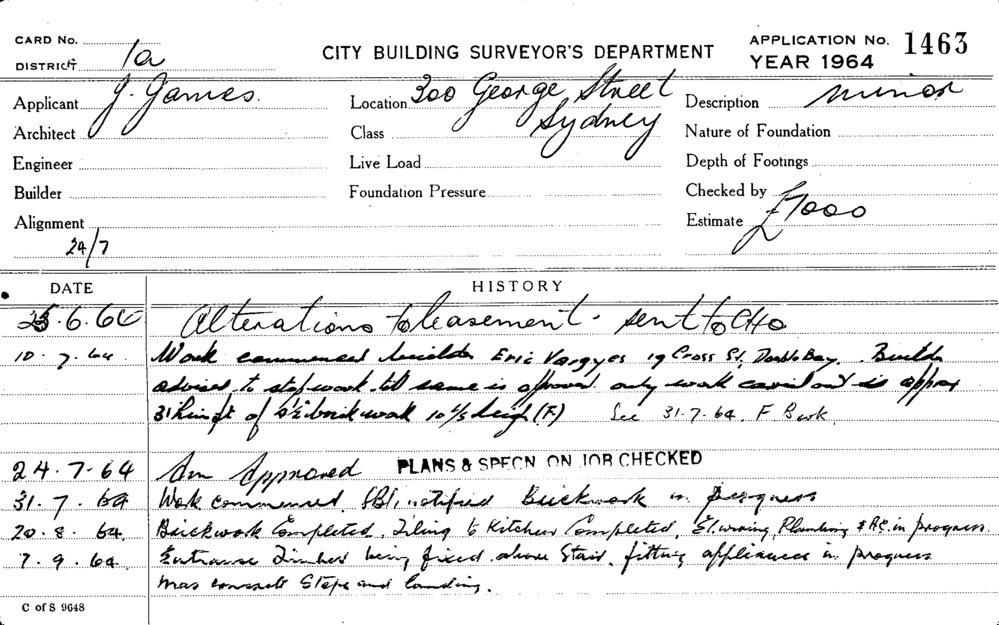 CARD No.
DISTRICT 1a
CITY BUILDING SURVEYOR'S DEPARTMENT
APPLICATION No. 1463
YEAR 1964
Applicant J. James.
Location 300 George Street
Sydney
Description minor
Architect
Class
Nature of Foundation
Engineer
Live Load
Depth of Footings
Builder
Foundation Pressure
Checked by
Alignment
Estimate £7000
24/7
DATE
HISTORY
25.6.64 Alterations to basement. sent to CHO
10.7.64 Work commenced builder Eric Vargyas 19 Cross St, Double Bay. Builder
advised to stop work till same is approved only work carried out is approx
31 lin ft of 4½ brickwork high (F) See 31.7.64. F Book
24.7.64 Approved PLANS & SPECN ON JOB CHECKED
31.7.64 Work commenced, notified Brickwork in progress
20.8.64. Brickwork Completed, Tiling to Kitchen Completed, El. wiring, Plumbing & in progress.
7.9.64. Entrance Timber being fixed above Stair, fitting appliances in progress
mas concrete Steps and landing.
C of S 9648